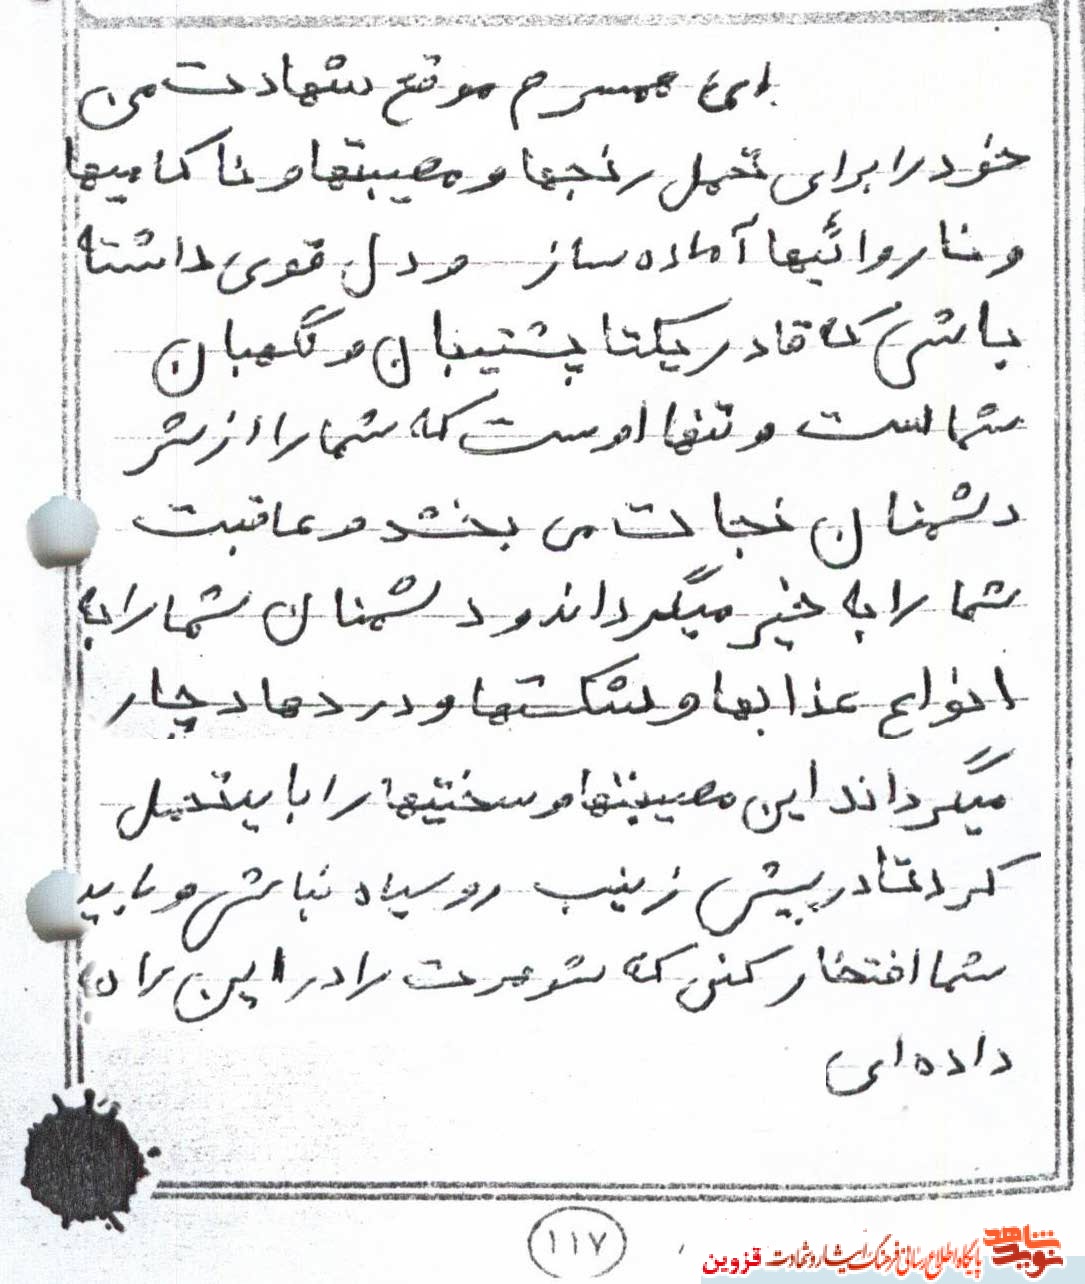 ای همسرم موقع شهادت من
خود را برای تحمل رنجها و مصیبتها و ناکامیها
و ناروائیها آماده ساز و دل قوی داشته
باشی که قادر یکتا پشتیبان و نگهبان
شماست و تنها اوست که شما را از شر
دشمنان نجات می بخشد و عاقبت
شما را به خیر میگرداند و دشمنان شما را به
انواع عذابها و شکستها و دردها دچار
میگرداند این مصیبتها و سختیها را باید تحمل
کرد تا در پیش زینب روسیاه نباشی و باید
شما افتخار کنی که شوهرت را در این راه
داده ای
۱۱۷
نوید شاهد
پایگاه اطلاع رسانی فرهنگ ایثار و شهادت قزوین